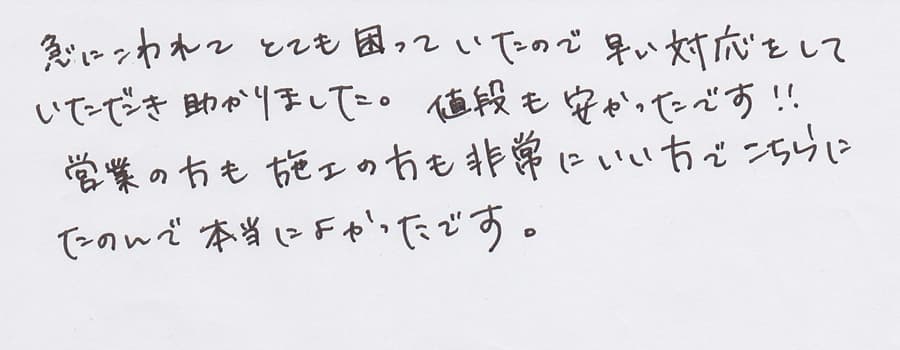 急にこわれて とても困っていたので 早い対応をして
いただき助かりました。 値段も安かったです!!
営業の方も施工の方も非常にいい方でこちらに
たのんで本当によかったです。